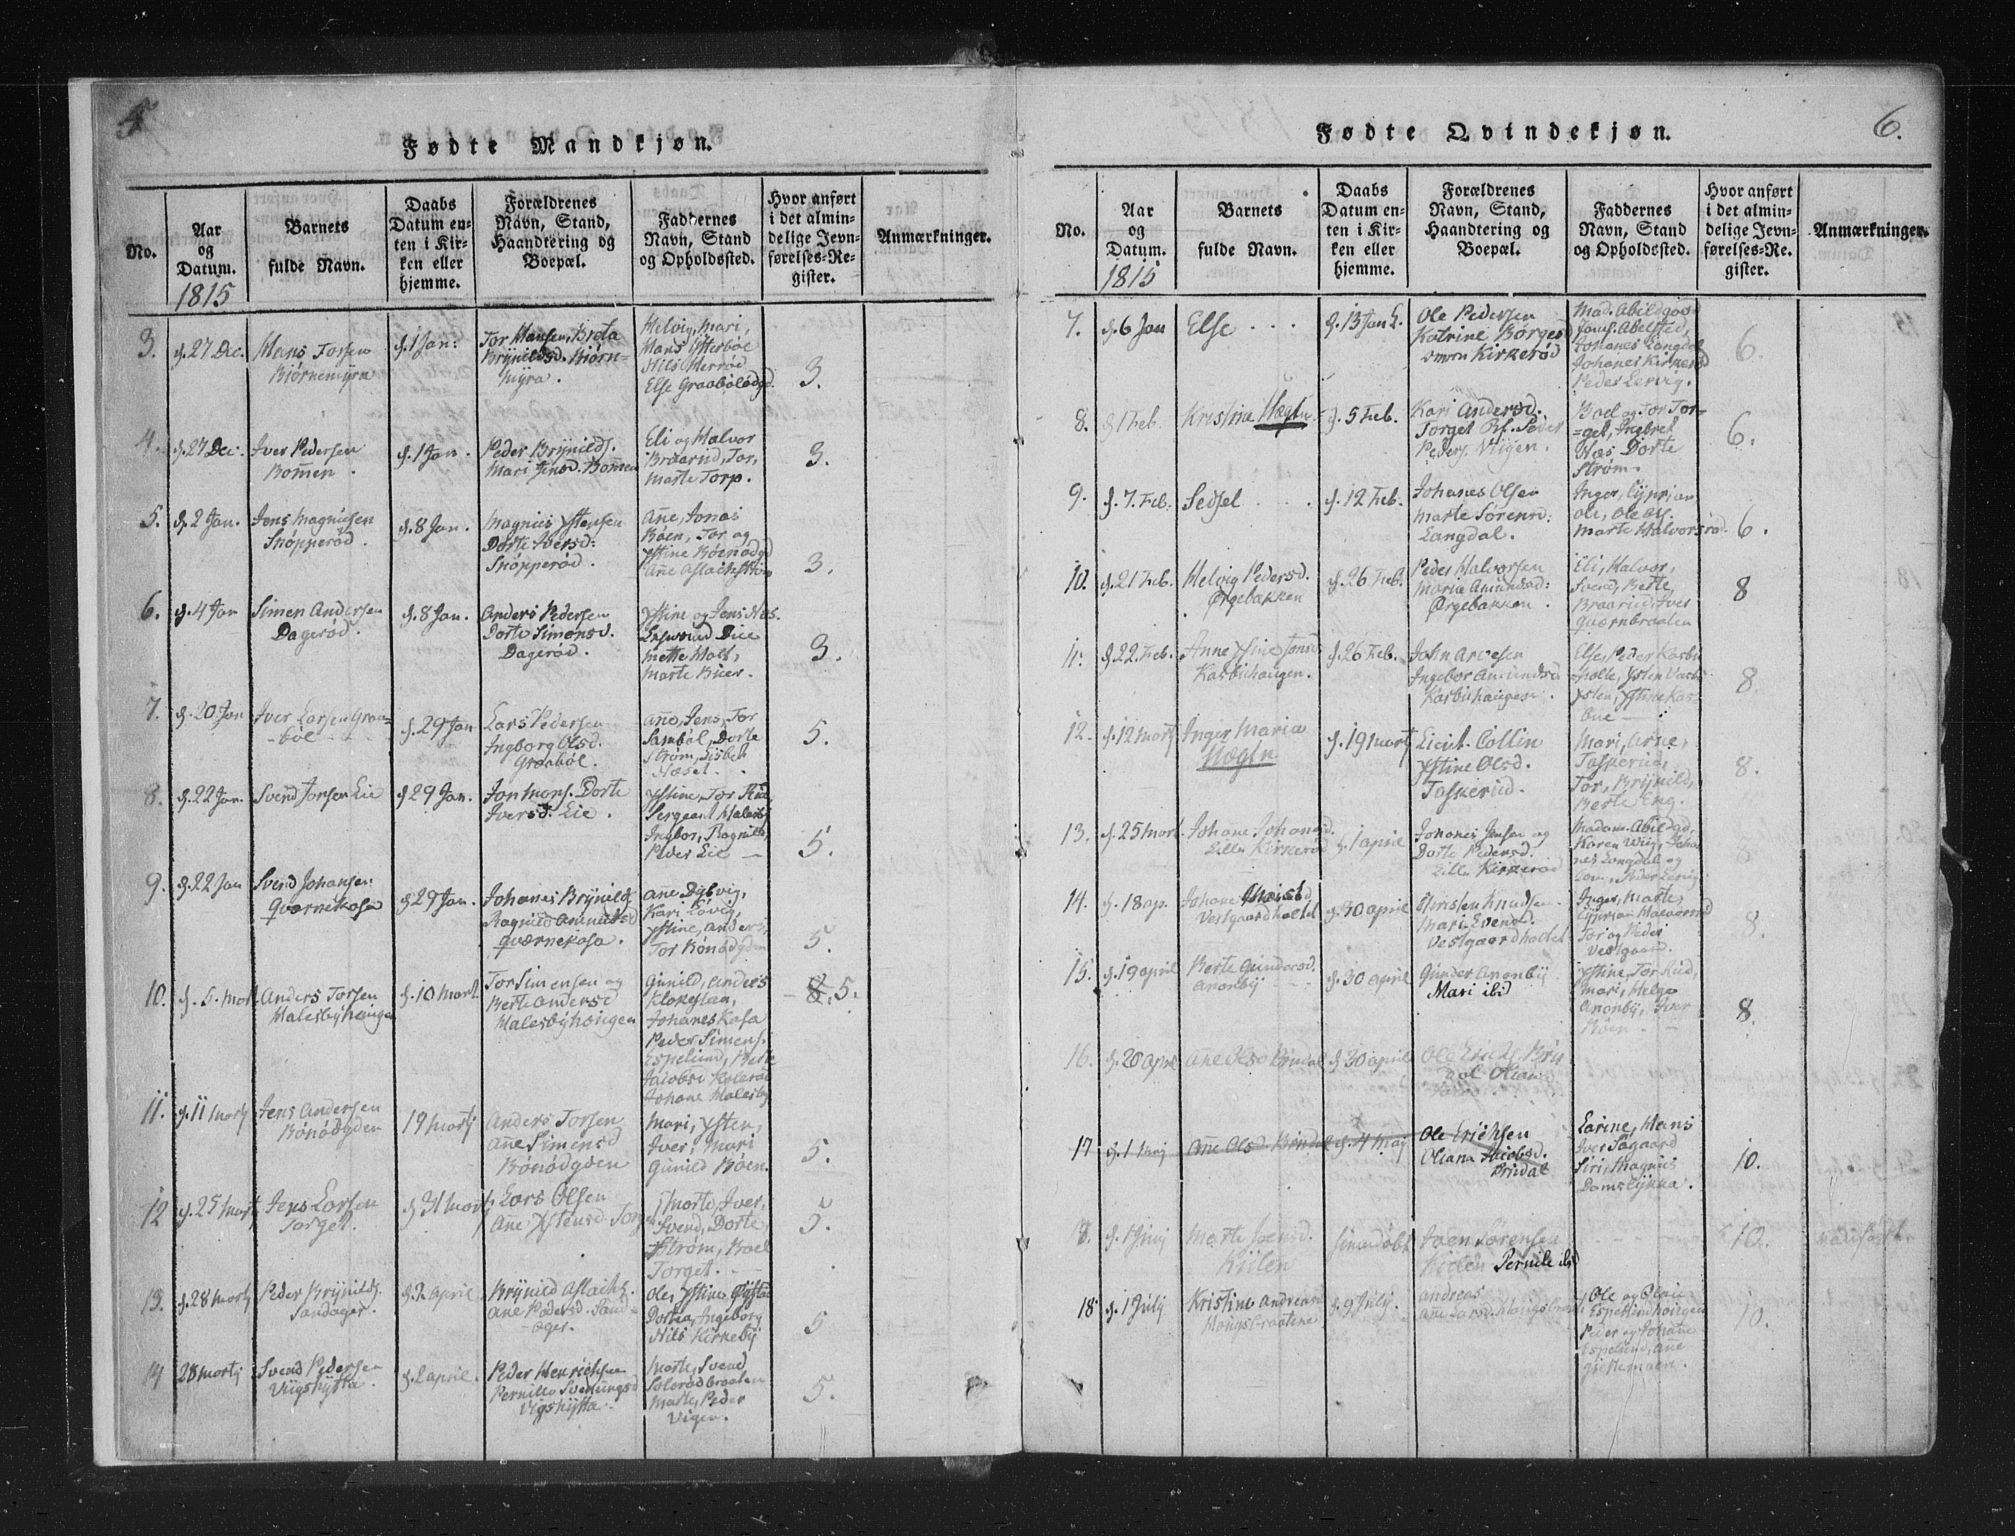 5
Fødte Mandkjøn.
No.
Aar
og
Datum.
1815
Barnets
fulde Navn.
Daabs
Datum en-
ten i Kir-
ken eller
hjemme.
Forældrenes
Navn, Stand,
Haandtering og
Boepæl.
Faddernes
Navn, Stand
og Opholdssted.
Hvor anført
i det almin-
delige Jevn-
førelses-Re-
gister.
Anmærkninger.
3.
d. 27 Dec.
Hans Torsen
Biørnemyra
d. 1 Jan:
Tor Hansen, Breta
Brynildsd. Biørn-
myra.
Helvig, Mari,
Hans Ytterbøl
Nils Herrød
Else Graabølødgd.
3.
4.
d. 27 Dec.
Iver Pedersen
Bommen.
d. 1 Jan.
Peder Brynilds.
Mari Jensd. Bommen
Eli og Halvor
Braarud, Tor,
Marte Torp.
3.
5.
d. 2 Jan.
Jens Magnusen
Snopperød.
d. 8 Jan.
Magnus Ystensen
Dorte Iversd:
Snopperød.
Ane, Jonas
Bøen, Tor og
Ystine Bøenødgd
Ane Aslachstrøm
3.
6.
d. 4 Jan
Simen Andersen
Dagerød.
d. 8 Jan.
Anders Pedersen
Dorte Simensd.
Dagerød.
Ystine og Jens Næs.
Due
Mette Holt,
Marte Buer.
3.
7.
d. 20 Jan
Iver Larsen Graa-
bøl
d. 29 Jan
Lars Pedersen
Ingborg Olsd.
Graabøl.
Ane, Jens, Tor
Sambøl, Dorte
Strøm, Lisbet
Hæsel.
5.
8.
d. 22 Jan.
Svend Jonsen Lie
d 29 Jan.
Jon Mons. Dorte
Iversd. Lie.
Ystine, Tor Rud
Sergeant Malesby
Ingbor, Ragnild,
Peder Lie
5.
9.
d. 22 Jan
Svend Johansen
Qværnekasa
d 29 Jan.
Johanes Brynilds
Ragnild Amundsd
Qværnekasa.
Ane Dybvig,
Kari Løvig,
Ystine, Anders
Tor Bønødgden
5.
10.
d. 5. Mort
Anders Torsen
Malesbyhaugen
d. 10 Mort.
Tor Simensen og
Berte Andersd
Malesbyhaugen
Gunild, Anders
Klokeslan,
Johanes Kasa
Peder Simens.
Espelund, Berte
Jacobsd Kolerød
Johane Malesby
8. 5.
11.
d. 11 Mortj
Jens Andersen
Bønødgden
19 Mortj
Anders Torsen
Ane Simensd
Bønødgden
Mari, Ysten,
Iver, Mari
Gunild Bøen.
5.
12
d. 25 Mort
Jens Larsen
Torget.
d 31 Mort
Lars Olsen
Ane Ystensd Torget
Morte, Iver,
Svend, Dorte,
Strøm, Boel
Torget.
5.
13.
d. 28 Mortj
Peder Brynilds.
Sandager.
d. 2 April
Brynild Aslachs.
Ane Pedersd. Sand-
ager.
Ole, Ystine Olstad
Dortea, Ingeborg
Nils Kirkeby
5
14
28 Mortj
Svend Pedersen
Viigshytta.
d. 2 April.
Peder Henrichsen
Pernille Svenungsd
Vigshytta.
Morte, Svend
Solerødbraaten
Marte, Peder
Vigen.
5.
6.
Fødte Qvindekjøn.
No.
Aar
og
Datum.
1815
Barnets
fulde Navn.
Daabs
Datum en-
ten i Kir-
ken eller
hjemme.
Forældrenes
Navn, Stand,
Haandtering og
Boepæl.
Faddernes
Navn, Stand
og Opholdssted.
Hvor anført
i det almin-
delige Jevn-
førelses-Re-
gister.
Anmærkninger.
7.
d. 6 Jan
Else
d. 13 Jan.
Ole Pedersen
Katrine Borges
Kirkerød
Mad. Abildgos
Jomf. Abelsted,
Johanes Langdal
Johanes Kirkerød
Peder Lervig.
6.
8.
d 1 Feb.
Kristine Uægte
d. 5 Feb.
Kari Andersd.
Torget Bf. Peder
Peders. Viigen.
Boel og Tor Tor-
=get, Ingbret
Næs Dorte
Strøm.
6.
9.
d. 7. Feb.
Sedsel
d. 12 Feb.
Johanes Olsen
Marte Sørensd:
Langdal.
Inger, Cyprian
Ole, Ole
Marte Halvorsrød.
6.
10.
d. 21 Feb.
Helvig Pedersd.
Ørgebakken
d. 26 Feb.
Peder Halvorsen
Maria Amundsd:
Ørgebakken.
Eli, Halvor,
Svend, Berte
Braarud, Iver
Qværnbraaten
8
11.
d. 22. Feb.
Anne Ystine Jonsd
Kasbuhaugen.
d. 26 Feb.
John Arvesen
Ingebor Amundsd
Kasbuhaugen.
Else, Peder Kasbu
Holte, Ysten
Ysten, Ystine Kas-
bue
8.
12.
d. 12 Mortj
Inger Maria
Uægte
d. 19 Mortj
Lieut. Collin
Ystine Olsd.
Taskerud.
Mari, Arne,
Taskerud,
Tor, Brynild,
Berte Eng.
8.
13.
d. 25 Mort
Johane Johansd.
Lille Kirkerød
d. 1 April
Johanes Jensen og
Dorte Pedersd.
Lille Kirkerød
Madam. Abildgd,
Karen Wiig, Joha-
nes Langdal og
Peder Lervig
14.
d. 18 ap.
Johane Christd.
Vestgaardholtet
d. 30 April
Christen Knudsen
Mari Evensd.
Vestgaardholtet
Inger, Marte,
Cyprian Halvorsrød
Tor og Peder
Vestgaard.
8.
15.
d. 19 April
Berte Gundersd.
Anonby
d. 30 April
Gunder Anonby
Mari ibid
Ystine, Tor Rud,
Mari, Helge
Anonby, Iver
Bøen
8.
16.
d. 20 April
Ane Olsd Brudal
d. 30 April
Ole Erichs. Bru
dal Oliane
17
d. 1 Maj
Ane Olsd. Brudal
d. 4 Maj
Ole Erichsen
Oliana Jacobsd.
Brudal
Larine, Hans
Iver Søgaard
Siri, Magnus
Damslykka.
10.
d. 1 Junj
Marte Joensd.
Kiilen
Joen Sørensen
Kielen Pernile ibd
10.
18
d. 1 Julj
Kristine Andreasd
Mangsbraatene
d. 9 Julj.
Andreas
Ane Larsd. Mangsbraat
Ole og Olave
Espelundhaugen
Peder og Johane
Espelund, Ane
10.